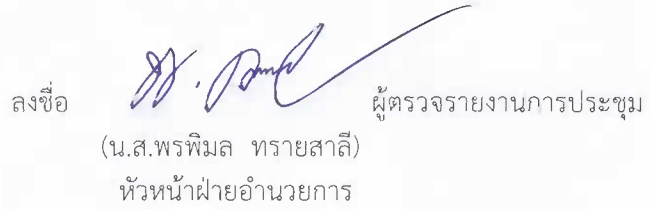 ลงชื่อ ผู้ตรวจรายงานการประชุม
(น.ส.พรพิมล ทรายสาลี)
หัวหน้าฝ่ายอำนวยการ